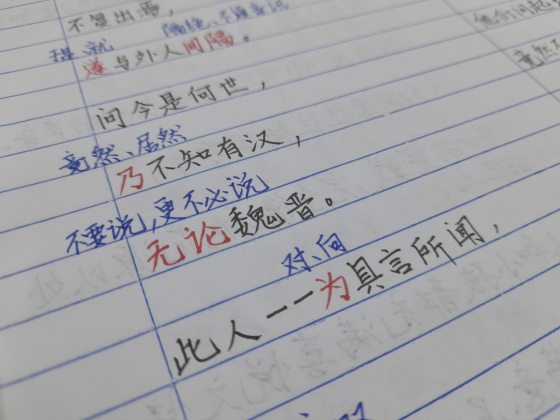 不复出焉,
隔绝、不通音讯
遂与外人间隔。
问今是何世,
竟然、居然
乃不知有汉,
不要说,更不必说
无论魏晋。
对、向
此人一一为具言所闻,